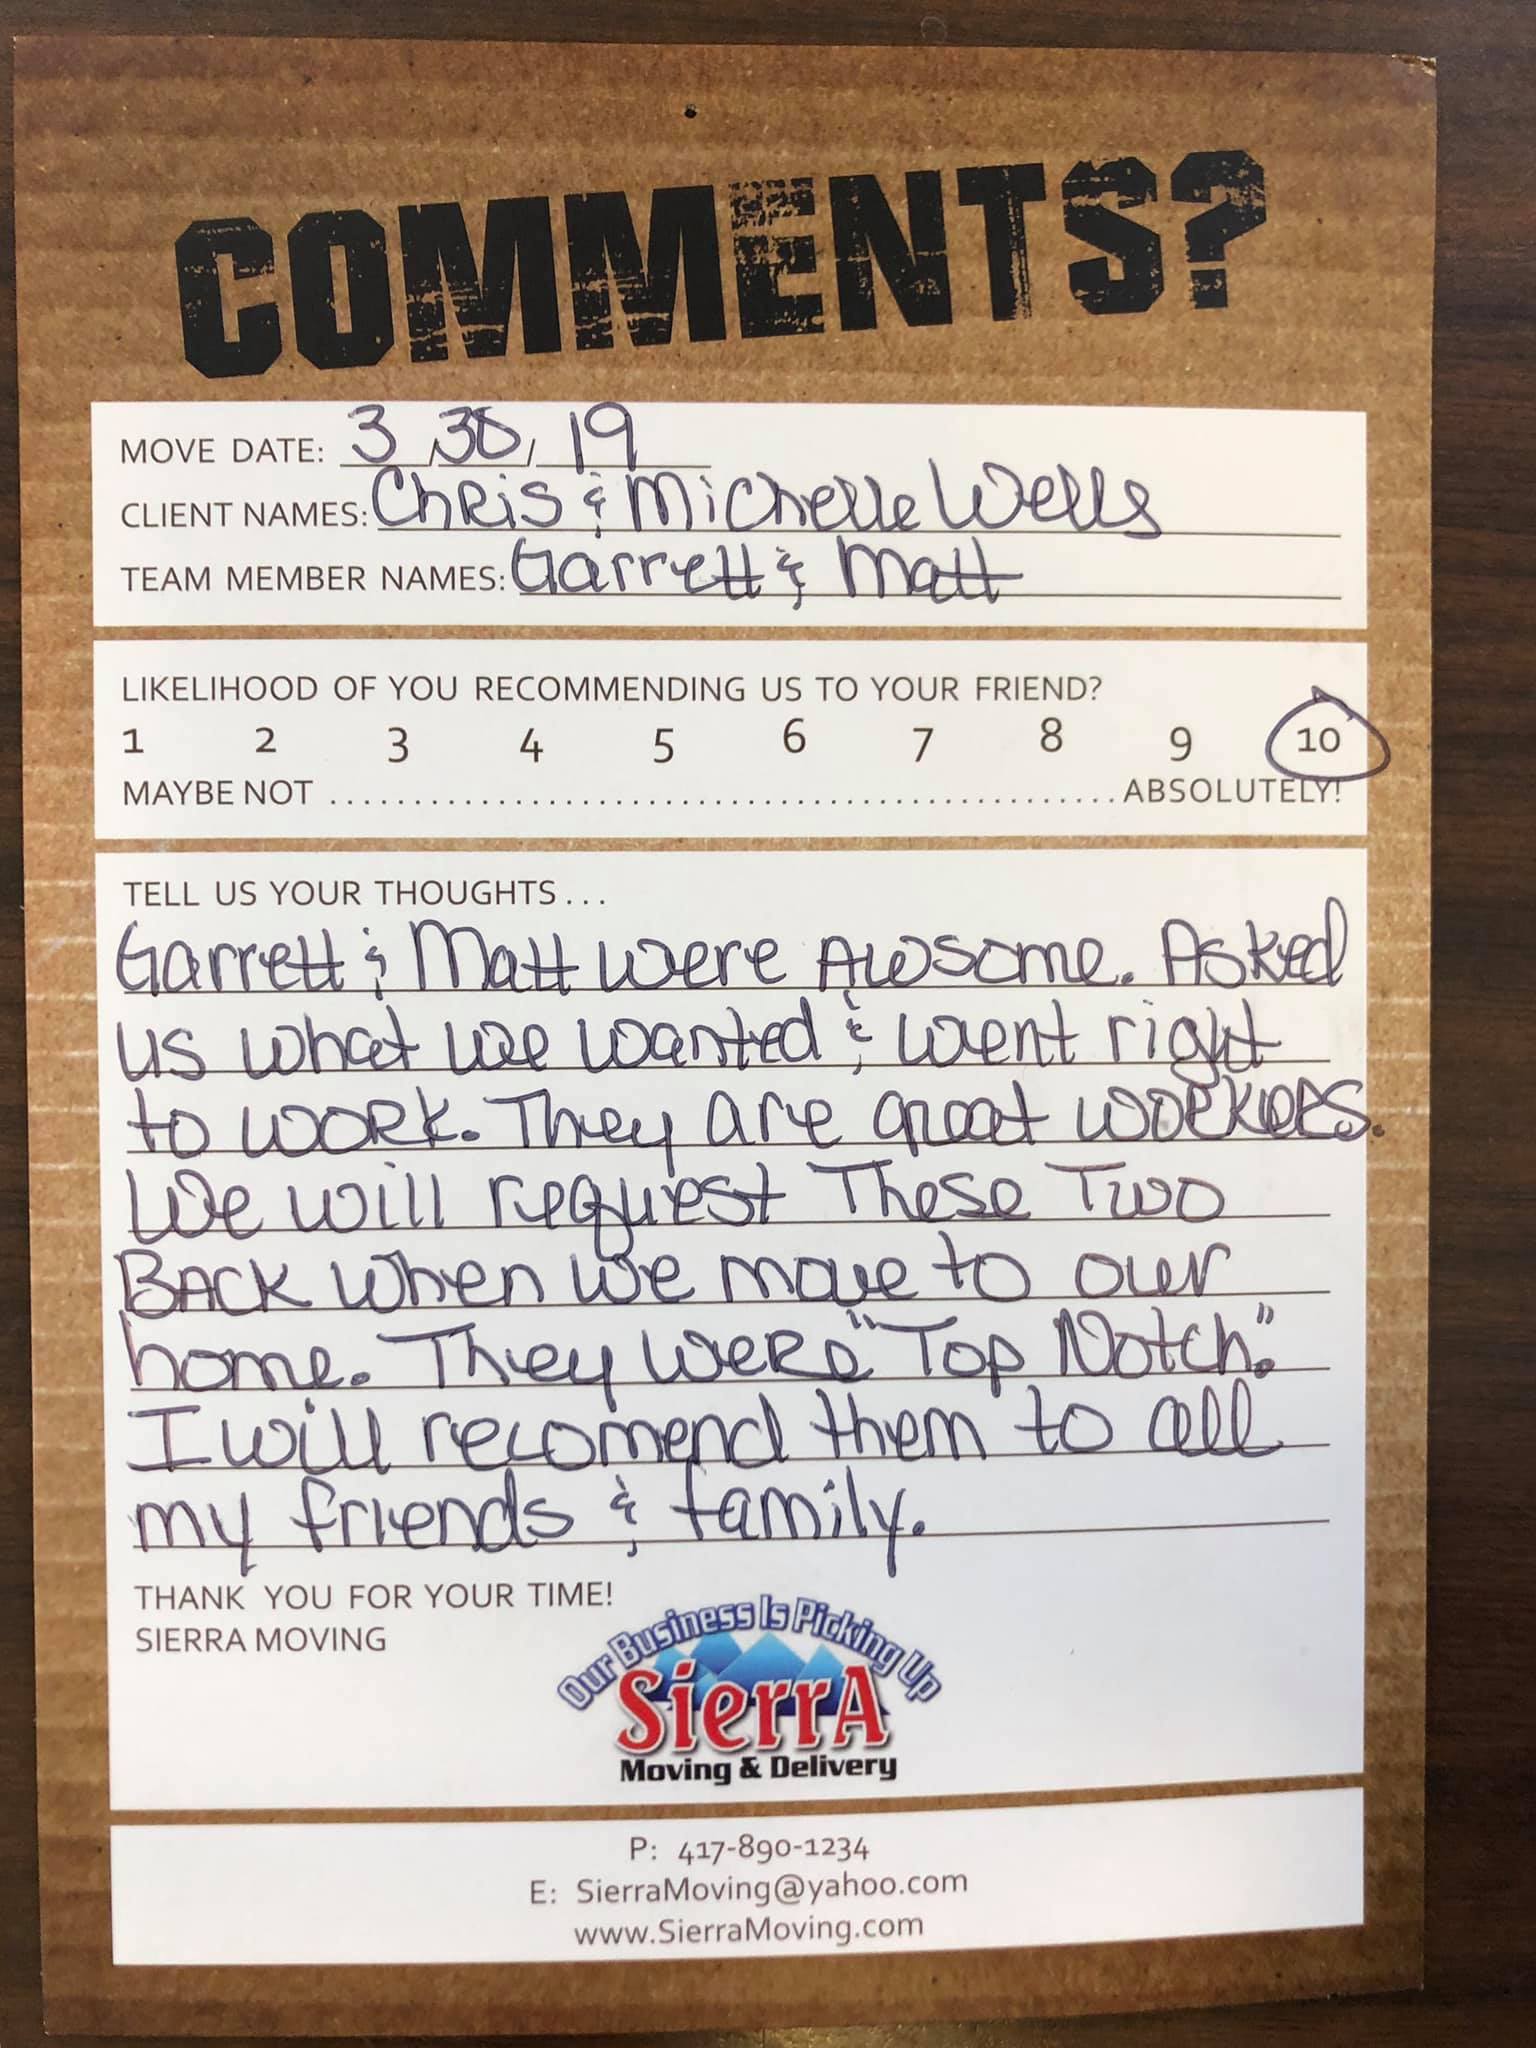 COMMENTS?
MOVE DATE: 3/30/19
CLIENT NAMES: Chris & Michelle Wells
TEAM MEMBER NAMES: Garrett & Matt
LIKELIHOOD OF YOU RECOMMENDING US TO YOUR FRIEND?
1 2 3 4 5 6 7 8 9 10
MAYBE NOT ........................................ ABSOLUTELY!
TELL US YOUR THOUGHTS...
Garrett & Matt were Awsome. Asked
us what we wanted & went right
to work. They are great workers.
We will request These Two
Back when we move to our
home. They were "Top Notch."
I will recomend them to all
my friends & family.
THANK YOU FOR YOUR TIME!
SIERRA MOVING
Our Business Is Picking Up
SierrA
Moving & Delivery
P: 417-890-1234
E: SierraMoving@yahoo.com
www.SierraMoving.com